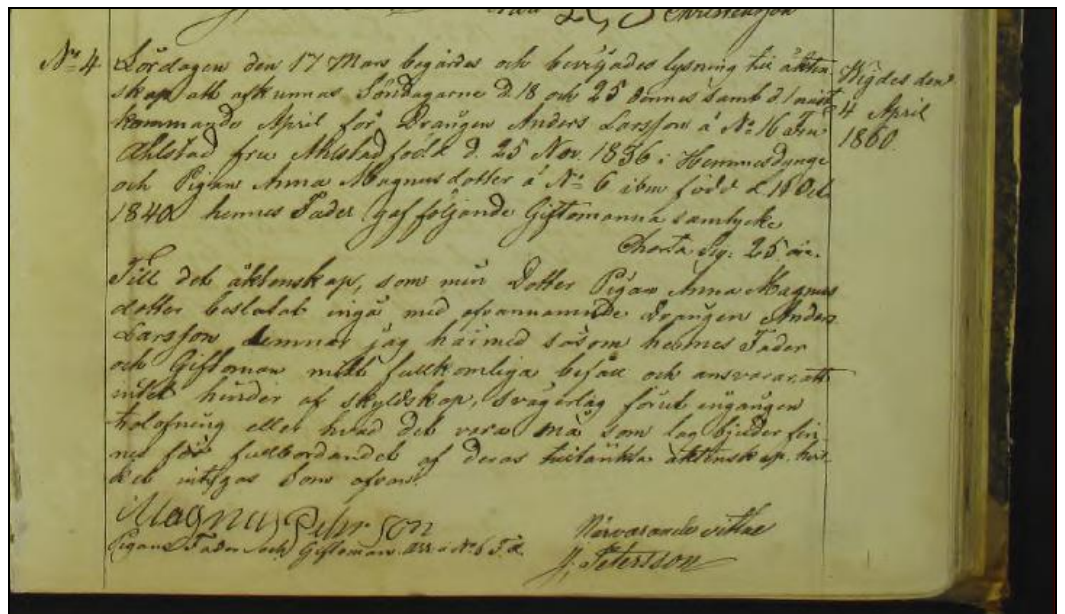 Christensson
Nº 4 Lördagen den 17 Mars begärdes och beviljades lysning till äkten-
skap att afkunnas Söndagarne d. 18 och 25 dennes samt d. 1 näst-
kommande April för Drängen Anders Larsson å Nº 16 Fru
Ahlstad fru Ahlstad född d. 25 Nov. 1836 i Hemmesdynge
och Pigan Anna Magnusdotter å Nº 6 ibm född d. 18 Oct
1840 hennes Fader gaf följande Giftomanna samtycke
Charta Sig: 25 öre.
Till det äktenskap, som min Dotter Pigan Anna Magnus
dotter beslutat ingå med ofvannämnde Drängen Anders
Larsson lemnar jag härmed såsom hennes Fader
och Giftoman mitt fullkomliga bifall och ansvarar, att
intet hinder af skyldskap, svågerlag förut ingången
trolofning eller hvad det vara må som lag bjuder fin-
nes för fullbordandet af deras tilltänkta äktenskap, hvil-
ket intygas som ofvan.
Magnus Pehrsson
Pigans Fader och Giftoman å Nº 6 F. A.
Närvarande vittne
J. Petersson
Wigdes den
4 April
1860